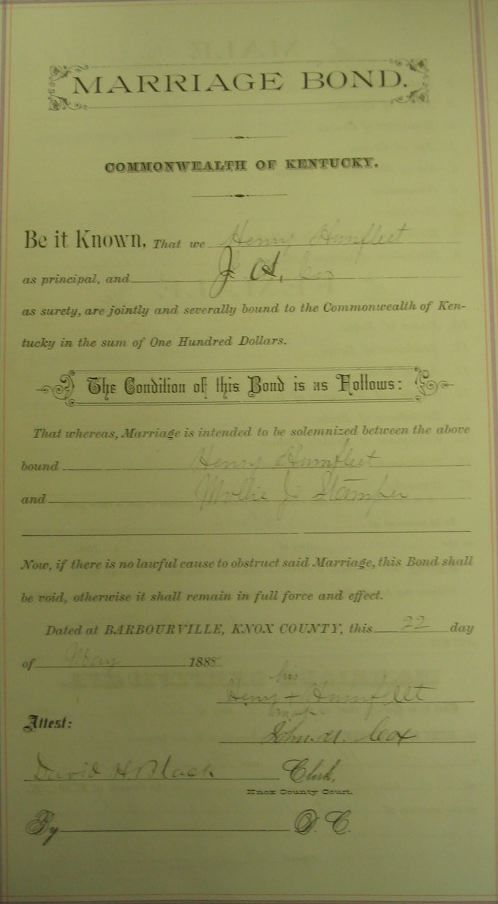 MARRIAGE BOND.
COMMONWEALTH OF KENTUCKY.
Be it Known, That we Henry Humfleet
as principal, and J. H. Cox
as surety, are jointly and severally bound to the Commonwealth of Ken-
tucky in the sum of One Hundred Dollars.
The Condition of this Bond is as Follows:
That whereas, Marriage is intended to be solemnized between the above
bound Henry Humfleet
and Mollie J. Stamper
Now, if there is no lawful cause to obstruct said Marriage, this Bond shall
be void, otherwise it shall remain in full force and effect.
Dated at BARBOURVILLE, KNOX COUNTY, this 22 day
of May 1888
his
Henry + Humfleet
mark
Attest:
John H. Cox
David H. Black Clerk,
Knox County Court.
By D. C.